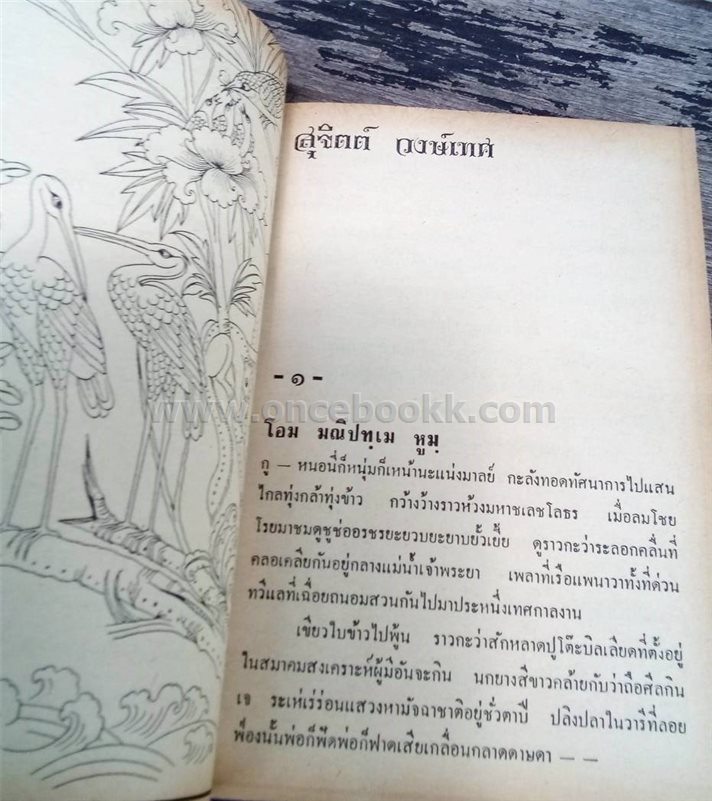 สุจิตต์ วงษ์เทศ
- ๑ -
www.oncebookk.com
โอม มณีปทฺเม หูมฺ
กู — หนอนี่ก็หนุ่มก็เหน้านะแน่งมาลย์ กะลังทอดทัศนาการไปแสน
ไกลทุ่งกล้าทุ่งข้าว กว้างว้างราวห้วงมหาชเลชโลธร เมื่อลมโชย
โรยมาชมดูชูช่ออรชรยะยวบยะยาบยั้วเยี้ย ดูราวกะว่าระลอกคลื่นที่
คลอเคลียกันอยู่กลางแม่น้ำเจ้าพระยา เพลาที่เรือแพนาวาทั้งที่ด่วน
ทวีแลที่เฉื่อยถนอมสวนกันไปมาประหนึ่งเทศกาลงาน
เขียวใบข้าวไปพู้น ราวกะว่าสักหลาดปูโต๊ะบิลเลียดที่ตั้งอยู่
ในสมาคมสงเคราะห์ผู้มีอันจะกิน นกยางสีขาวคล้ายกับว่าถือศีลกิน
เจ ระเห่เร่ร่อนแสวงหามัจฉาชาติอยู่ชั่วตาปี ปลิงปลาในวารีที่ลอย
พ่องนั้นพ่อก็พัดพ่อก็ฟาดเสียเกลื่อนกลาดดาษดา — —